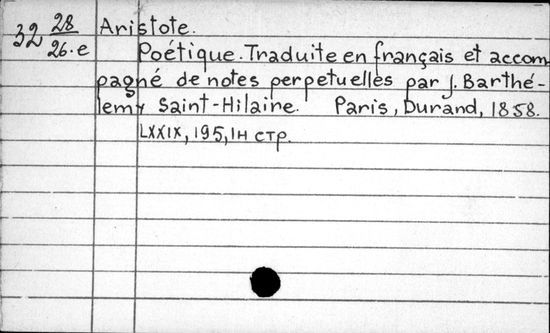 32 28/26.е Aristote.
Poétique. Traduite en français et accom
pagné de notes perpetuelles par J. Barthé-
lemy Saint-Hilaine. Paris, Durand, 1858.
LXXIX, 195, 1н стр.